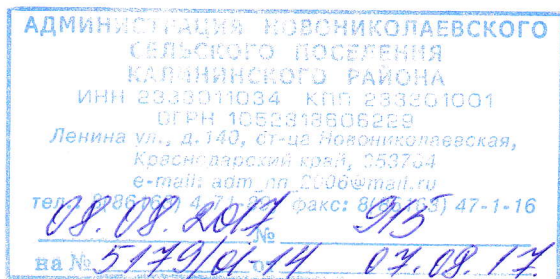 АДМИНИСТРАЦИЯ НОВОНИКОЛАЕВСКОГО
СЕЛЬСКОГО ПОСЕЛЕНИЯ
КАЛИНИНСКОГО РАЙОНА
ИНН 2333011034 КПП 233301001
ОГРН
Ленина ул., д.140, ст-ца Новониколаевская,
Краснодарский край,
e-mail: adm_nn_2006@mail.ru
факс: 47-1-16
08.08.2017 № 915
на № 5179/01-14 от 07.08.17